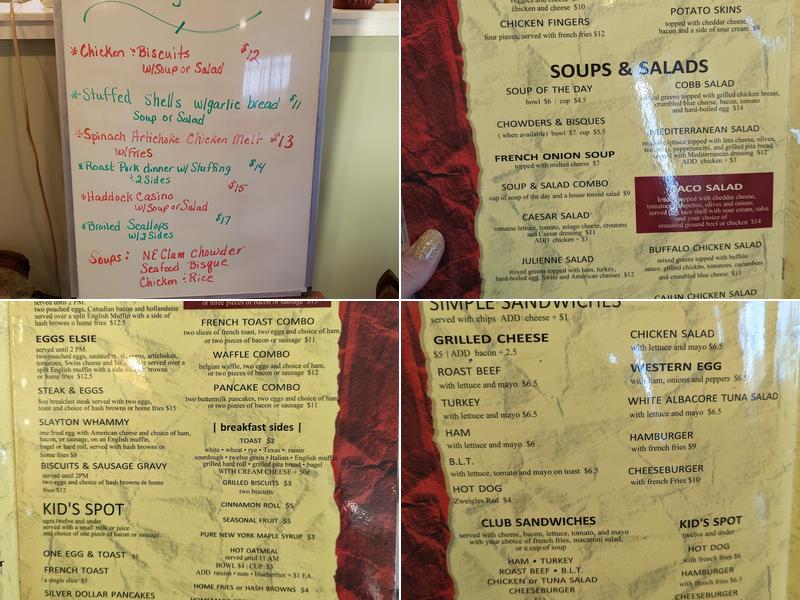 *Chicken & Biscuits $12
w/Soup or Salad
*Stuffed Shells w/garlic bread $11
Soup or Salad
*Spinach Artichoke Chicken Melt $13
w/Fries
*Roast Pork dinner w/ Stuffing $14
& 2 Sides
*Haddock Casino $15
w/Soup or Salad
*Broiled Scallops $17
w/2 Sides
Soups: NE Clam Chowder
Seafood Bisque
Chicken & Rice
chicken and cheese $10
CHICKEN FINGERS
four pieces, served with french fries $12
POTATO SKINS
topped with cheddar cheese,
bacon and a side of sour cream $9
SOUPS & SALADS
SOUP OF THE DAY
bowl $6 | cup $4.5
CHOWDERS & BISQUES
( when available) bowl $7 cup $5.5
FRENCH ONION SOUP
topped with melted cheese $7
SOUP & SALAD COMBO
cup of soup of the day and a house tossed salad $9
CAESAR SALAD
romaine lettuce, tomato, asiago cheese, croutons
and Caesar dressing $11
ADD chicken + $3
JULIENNE SALAD
mixed greens topped with ham, turkey,
hard-boiled egg, Swiss and American cheeses $12
COBB SALAD
greens topped with grilled chicken breast,
crumbled blue cheese, bacon, tomato
and hard-boiled egg $14
MEDITERRANEAN SALAD
lettuce topped with feta cheese, olives,
pepperoncini, and grilled pita bread
served with Mediterranean dressing $12
ADD chicken + $3
TACO SALAD
topped with cheddar cheese,
jalapeños, olives and onions
taco shell with sour cream, salsa
and your choice of
seasoned ground beef or chicken $14
BUFFALO CHICKEN SALAD
mixed greens topped with buffalo
sauce, grilled chicken, tomatoes, cucumbers
and crumbled blue cheese $13
CAJUN CHICKEN SALAD
served until 2 PM.
two poached eggs, Canadian bacon and hollandaise
served over a split English Muffin with a side of
hash browns or home fries $12.5
EGGS ELSIE
served until 2 PM.
two poached eggs, sautéed artichokes,
tomatoes, Swiss cheese and served over a
split English muffin with a side browns
or home fries $12.5
STEAK & EGGS
8oz breakfast steak served with two eggs,
toast and choice of hash browns or home fries $15
SLAYTON WHAMMY
one fried egg with American cheese and choice of ham,
bacon, or sausage, on an English muffin,
bagel or hard roll, served with hash browns or
home fries $8
BISCUITS & SAUSAGE GRAVY
served until 2PM
two eggs and choice of hash browns or home
fries $12
KID'S SPOT
ages twelve and under
served with a small milk or juice
and choice of one piece of bacon or sausage.
ONE EGG & TOAST $5
FRENCH TOAST
a single slice $5
SILVER DOLLAR PANCAKES
or three pieces of bacon or sausage
FRENCH TOAST COMBO
two slices of french toast, two eggs and choice of ham,
or two pieces of bacon or sausage $11
WAFFLE COMBO
belgian waffle, two eggs and choice of ham,
or two pieces of bacon or sausage $12
PANCAKE COMBO
two buttermilk pancakes, two eggs and choice of ham,
or two pieces of bacon or sausage $11
| breakfast sides |
TOAST $2
white • wheat • rye • Texas • raisin
sourdough • twelve grain • Italian • English muffin
grilled hard roll • grilled pita bread • bagel
WITH CREAM CHEESE + 50¢
GRILLED BISCUITS $3
two biscuits
CINNAMON ROLL $5
SEASONAL FRUIT $5
PURE NEW YORK MAPLE SYRUP $3
HOT OATMEAL
served until 11 AM
BOWL $4 | CUP $3
ADD raisins • nuts • blueberries + $1 EA.
HOME FRIES or HASH BROWNS $4
SIMPLE SANDWICHES
served with chips ADD cheese + $1
GRILLED CHEESE
$5 | ADD bacon + 2.5
ROAST BEEF
with lettuce and mayo $6.5
TURKEY
with lettuce and mayo $6.5
HAM
with lettuce and mayo $6
B.L.T.
with lettuce, tomato and mayo on toast $6.5
HOT DOG
Zweigles Red $4
CHICKEN SALAD
with lettuce and mayo $6.5
WESTERN EGG
with ham, onions and peppers $6.5
WHITE ALBACORE TUNA SALAD
with lettuce and mayo $6.5
HAMBURGER
with french fries $9
CHEESEBURGER
with french Fries $10
CLUB SANDWICHES
served with cheese, bacon, lettuce, tomato, and mayo
with your choice of french fries, macaroni salad,
or a cup of soup
HAM • TURKEY
ROAST BEEF • B.L.T.
CHICKEN or TUNA SALAD
CHEESEBURGER
KID'S SPOT
twelve and under
HOT DOG
with french fries $6
HAMBURGER
with french fries $6.5
CHEESEBURGER